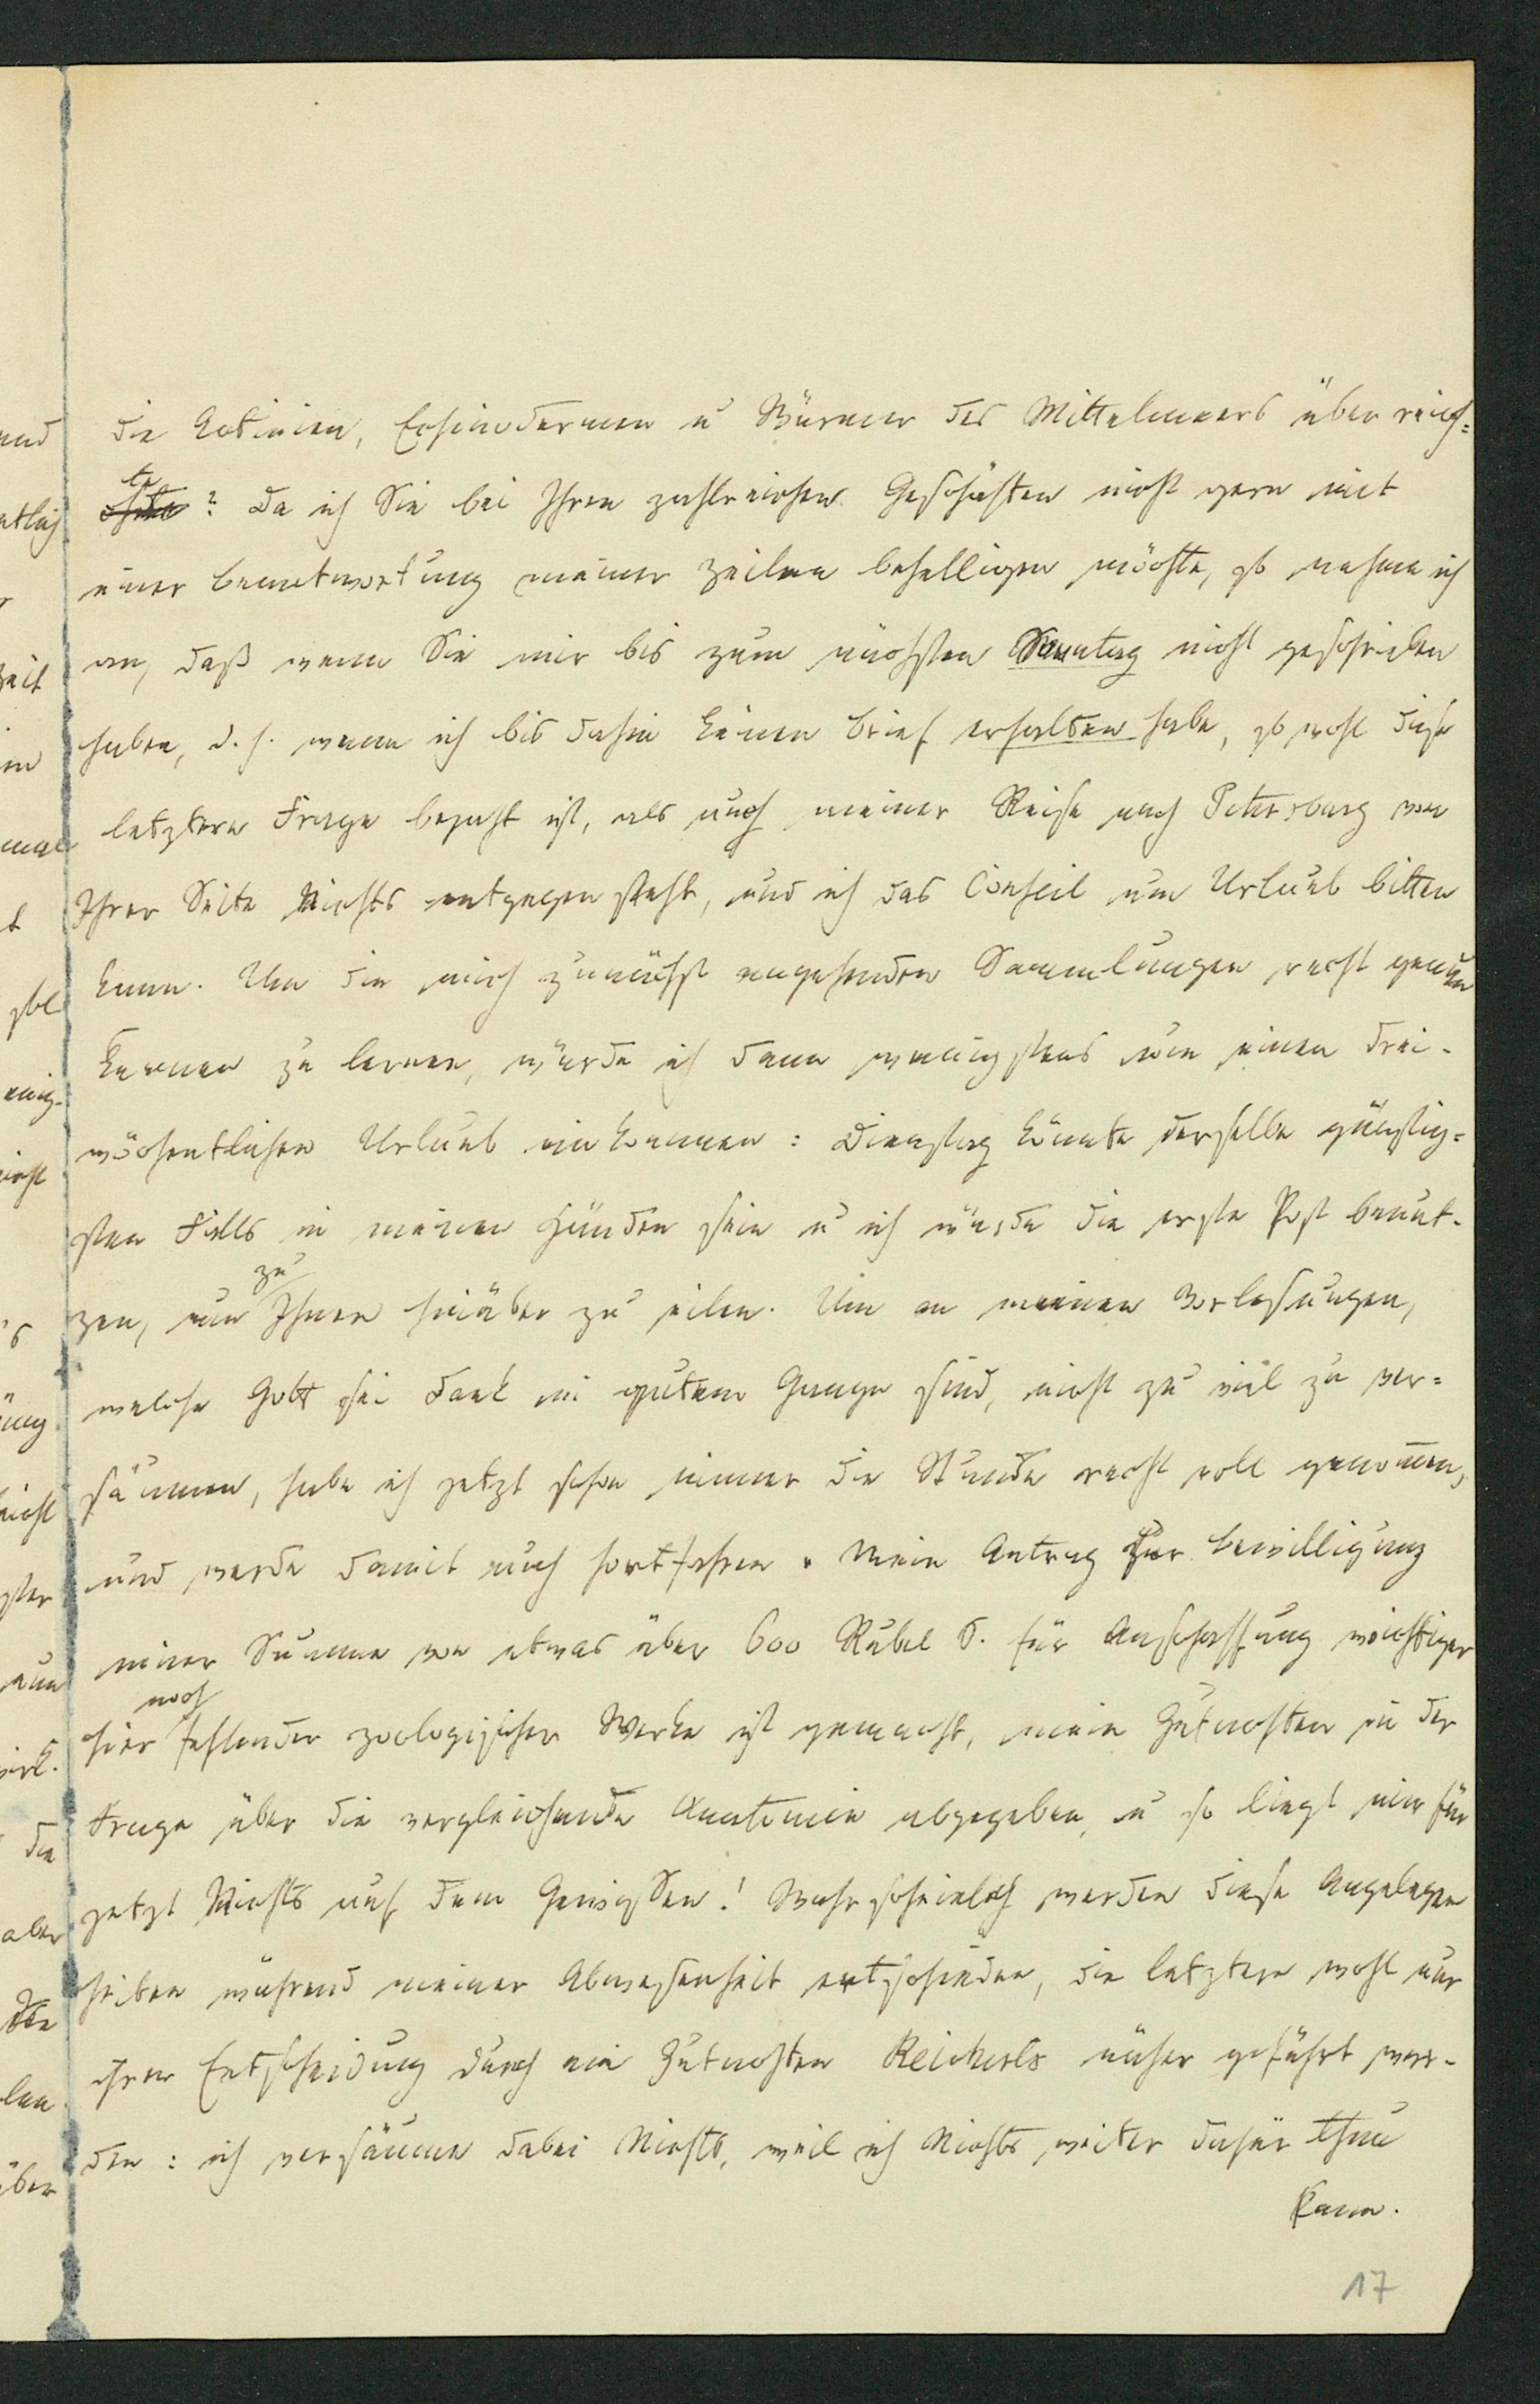 die Actinien, Echinodermen u Würmer des Mittelmeers über reich=
te? Da ich Sie bei Ihren zahlreichen Geschäften nicht gern mit
einer Beantwortung meiner Zeilen behelligen möchte, so nehme ich
an, daß wenn Sie mir bis zum nächsten Sonntag nicht geschrieben
haben, d. h. wenn ich bis dahin keinen Brief erhalten habe, so wohl diese
letztere Frage bejaht ist, als auch meiner Reise nach Petersburg von
Ihrer Seite Nichts entgegen steht, und ich das Conseil um Urlaub bitten
kann. Um die mich zunächst angehenden Sammlungen recht genau
kennen zu lernen, würde ich dann wenigstens um einen drei-
wöchentlichen Urlaub einkommen: Dienstag könnte derselbe günstig=
sten Falls in meinen Händen sein u ich würde die erste Post benut-
zen, um zu Ihnen hinüber zu eilen. Um an meinen Vorlesungen,
welche Gott sei Dank im guten Gange sind, nicht zu viel zu ver=
säumen, habe ich jetzt schon immer die Stunde recht voll genom̄en,
und werde damit auch fortfahren. Mein Antrag zur Bewilligung
einer Summe von etwas über 600 Rubel S. für Anschaffung wichtiger
hier noch fehlender zoologischer Werke ist gemacht, mein Gutachten in der
Frage über die vergleichende Anatomie abgegeben, u so liegt mir für
jetzt Nichts auf dem Gewissen! Wahrscheinlich werden diese Angelegen
heiten während meiner Abwesenheit entschieden, die letztere wohl nur
ihrer Entscheidung durch ein Gutachten Reicherts näher geführt wer-
den: ich versäume dabei Nichts, weil ich Nichts weiter dafür thun
kann.
17